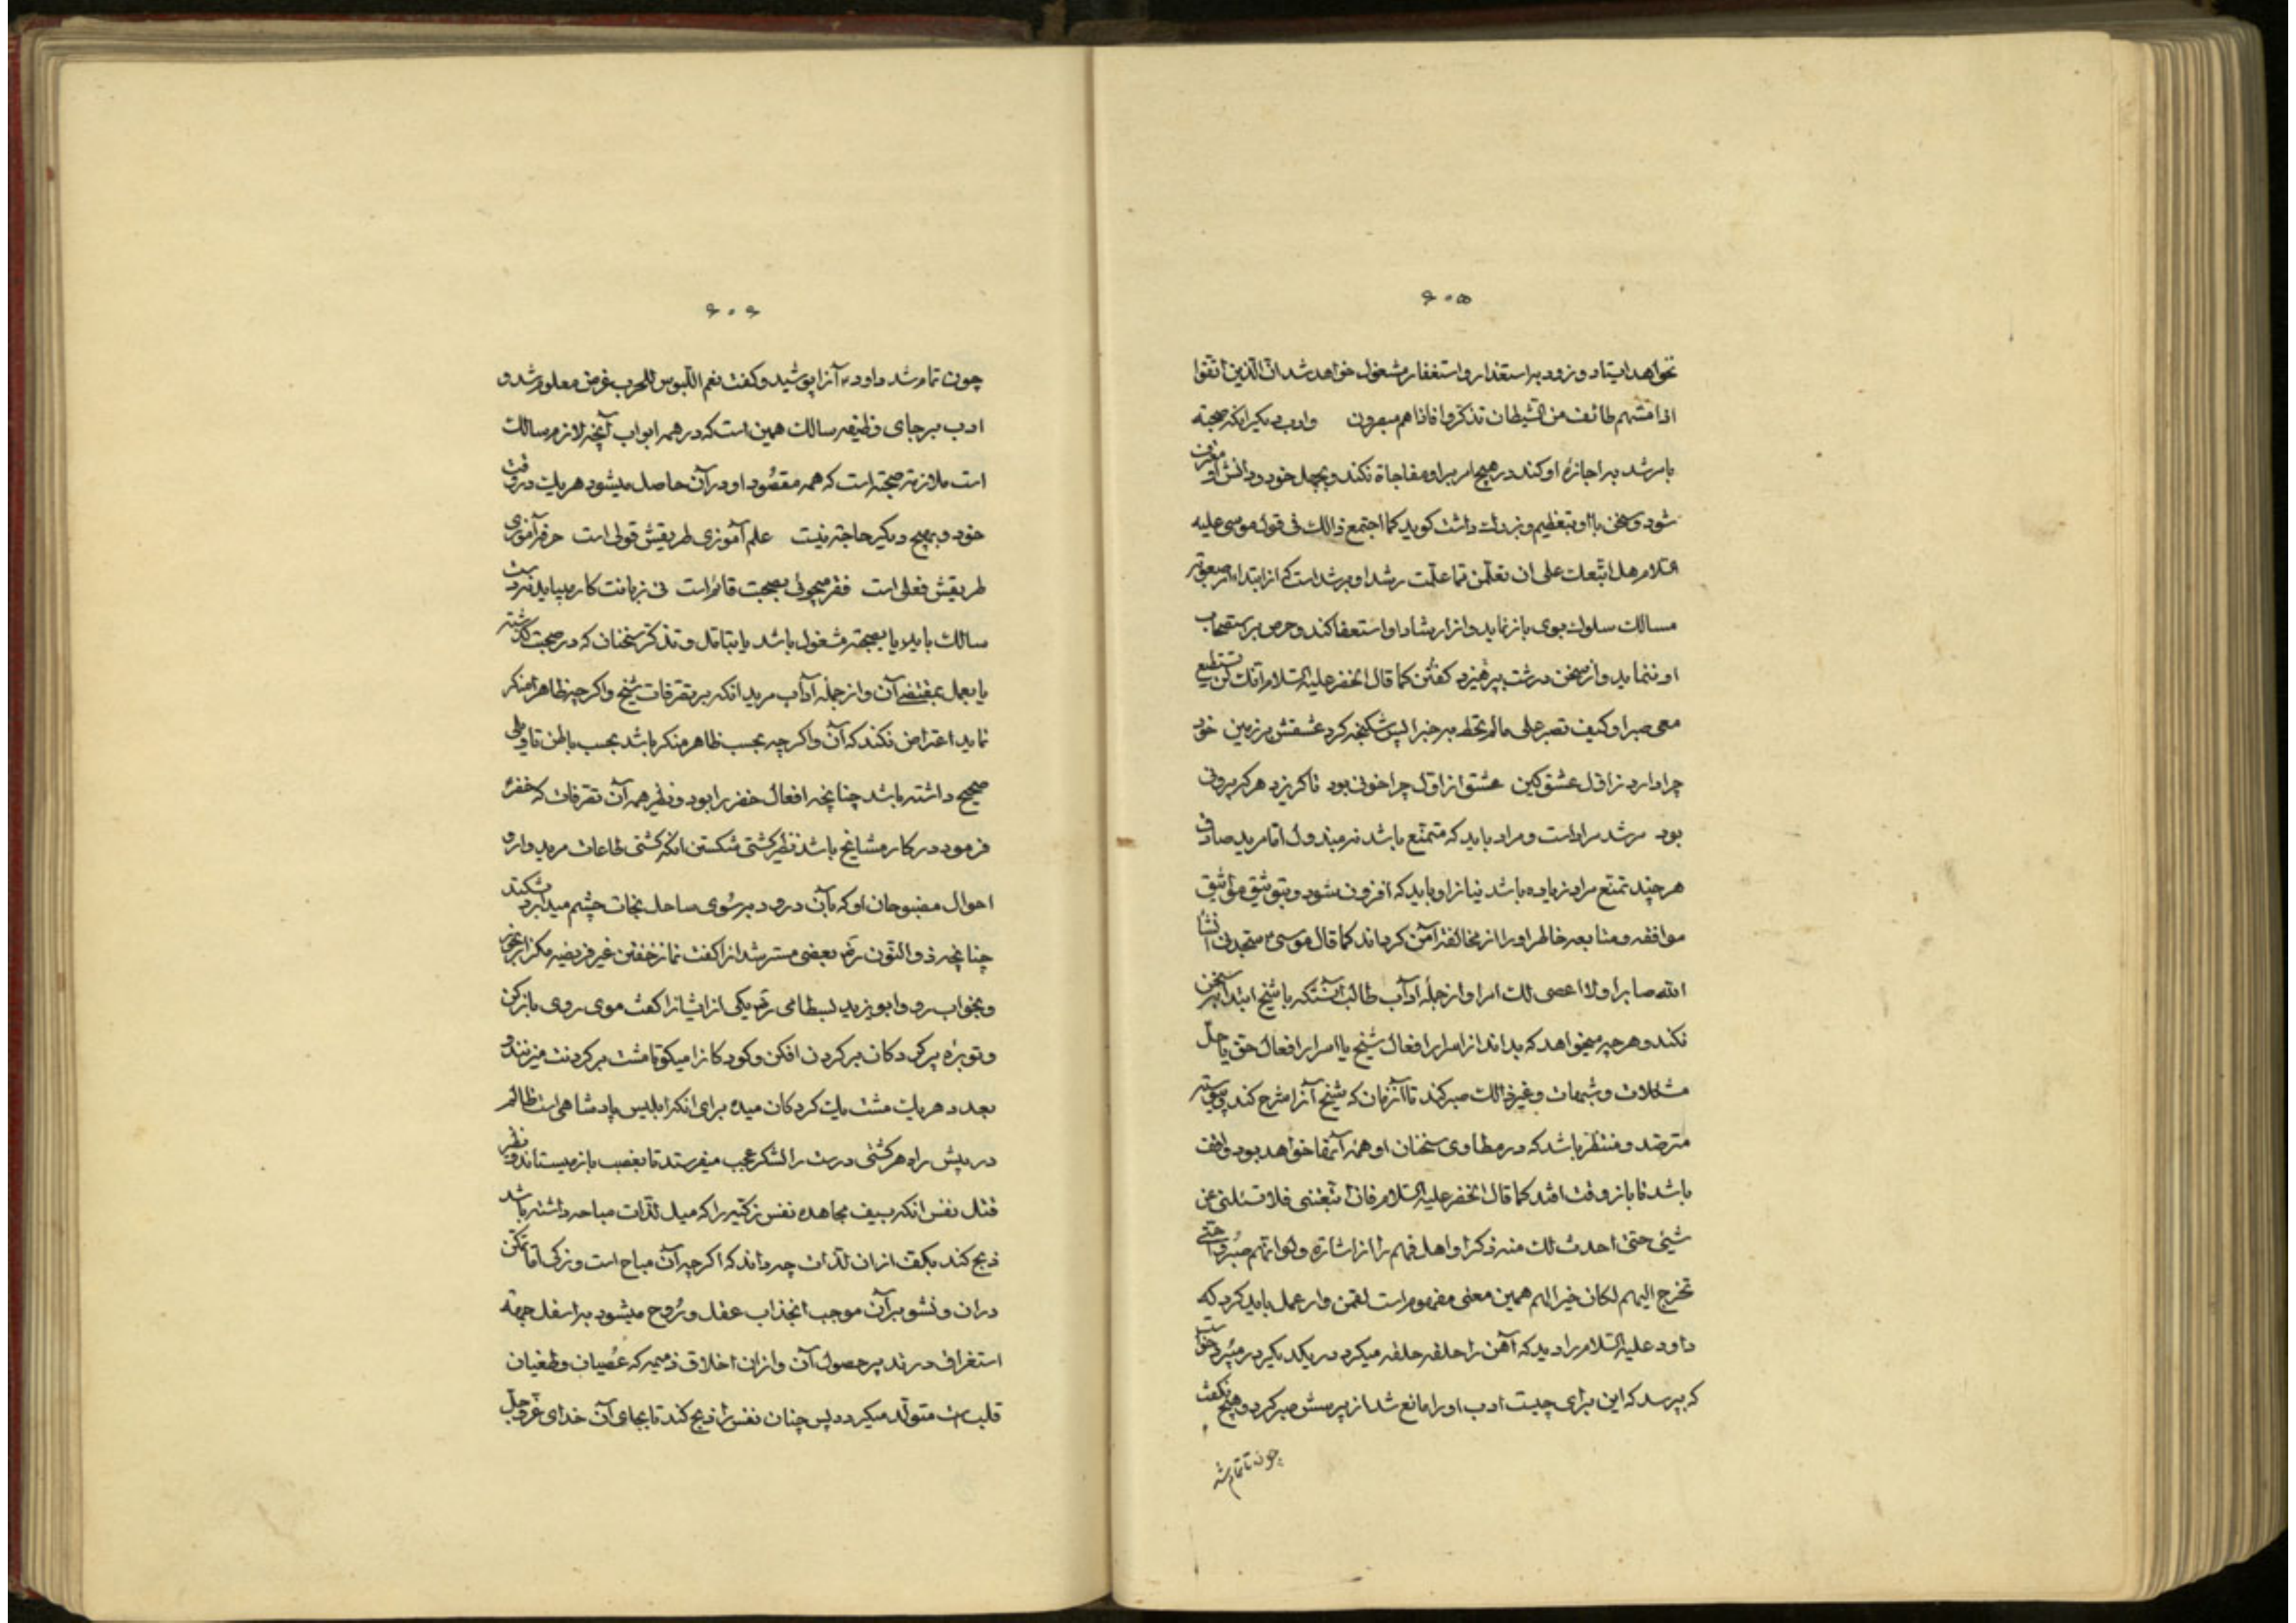 ۶۰۵
نخواهد ایستاد و زود به استعذار و استغفار مشغول خواهد شد ان الذین اتقوا
اذا مسّهم طائف من الشیطان تذکروا فاذا هم مبصرون و ادب دیکر انکه صحبته
با مرشد به اجازۀ او کند در هیچ امر بر او مفاجاة نکند و بجهل خود و دانش او معترف
شود و سخن با او بتعظیم و بزرك داشت کوید کما اجتمع ذالك فی قول موسی علیه
السّلام هل اتّبعك علی ان تعلّمن ممّا علّمت رشدا و مرشد است که از ابتداء امر صعوبة
مسالك سلوك بوی باز نماید و از ارشاد او استعفا کند و حرص بر استصحاب
او ننماید و از سخن درشت بپرهیزد کفتن کما قال الخضر علیه السّلام انّك لن تستطیع
معی صبرا و کیف تصبر علی ما لم تحط به خبرا پس شکنجه کرد عشقش بر زمین خود
چرا دارد ز اوّل عشق کین عشق از اوّل چرا خونی بود تا کریزد هر که بیرونی
بود مرشد مراد است و مراد باید که متمنّع باشد نه مبذول امّا مرید صادق
هر چند تمنّع مراد زیاده باشد نیاز او باید که افزون شود و بتوثیق مواثیق
موافقه و متابعه خاطر او را از مخالفة آمن کرداند کما قال موسی ستجدنی انشا
الله صابرا و لا اعصی لك امرا و از جملۀ آداب طالب آنستکه با شیخ ابتدا بسخن
نکند و هر چه میخواهد که بداند از اسرار افعال شیخ یا اسرار افعال حق یا حلّ
مشکلات و شبهات و غیر ذالك صبر کند تا آنزمان که شیخ آنرا شرح کند پیوسته
مترصّد و منتظر باشد که در مطاوی سخنان او همۀ آنها خواهد بود واقف
باشد تا باز وقت افتد کما قال الخضر علیه السّلام فان اتّبعتنی فلا تسئلنی عن
شیئی حتّی احدث لك منه ذکرا و اهل فهم را از اشارة و لو انّهم صبروا حتّی
تخرج الیهم لکان خیرا لهم همین معنی مفهوم است لقمن وار عمل باید کرد که
داود علیه السّلام را دید که آهن را حلقه حلقه میکرد در یکدیکر میبرد خواست
که بپرسد که این برای چیست ادب او را مانع شد از پرسش صبر کرد و هیچ نکفت
چون تمام شد
۶۰۶
چون تمام شد داود آنرا پوشید و کفت نعم اللّبوس للحرب غرض معلوم شد و
ادب بر جای وظیفه سالك همین است که در همه ابواب آنچه لازم سالك
است ملازمة صحبته است که همه مقصُود او در آن حاصل میشود هر یك در وقت
خود و بهیچ دیکر حاجة نیست علم آموزی طریقش قولی است حرفه آموزی
طریقش فعلی است فقر میجوئی بصحبت قائم است نی زبانت کار میاید نه دست
سالك باید یا بصحبته مشغول باشد یا بتامّل و تذکّر سخنان که در صحبت کذشته
یا بعمل بمقتضی آن و از جملۀ آداب مرید انکه بر تصّرفات شیخ و اکرچه ظاهرا منکر
نماید اعتراض نکند که آن و اکرچه بحسب ظاهر منکر باشد بحسب باطن تاویلی
صحیح داشته باشد چنانچه افعال خضر را بود و نظیر همه آن تصّرفات که خضر
فرمود در کار مشایخ باشد نظیر کشتی شکستن انکه کشتی طاعات مرید و ارادۀ
احوال او که بآن در رود بر سُوی ساحل نجات چشم میدارد بشکند
چنانچه ذو النّون ره بعضی مسترشدانرا کفت نماز خفتن غیر فریضه مکزار نان بخور
و بخواب رو و ابو یزید بسطامی ره یکی از ایشانرا کفت موی روی باز کن
و توبرۀ پر کردکان بر کردن افکن و کودکانرا میکو تا مشت بر کردنت میزنند و
بعدد هر یك مشت یك کردکان میده برای انکه ابلیس پادشاهی است ظالم
در پیش راه هر کشتی درست را لشکر عجب میفرستد تا بغصب باز میستاند و نظیر
قتل نفس انکه بسیف مجاهده نفس زکیّه را که میل لذّات مباحه داشته باشد
ذبح کند بکفّ از ان لذّات چه داند که اکرچه آن مباح است و زکی امّا تمکّن
در ان و نشو بر آن موجب انجذاب عقل و رُوح میشود به اسفل جهة
استغراق در تدبیر حصول آن و از ان اخلاق ذمیمه که عُصیان و طغیان
قلب است متولّد میکردد پس چنان نفس را ذبح کند تا بجای آن خدای عزّ و جلّ